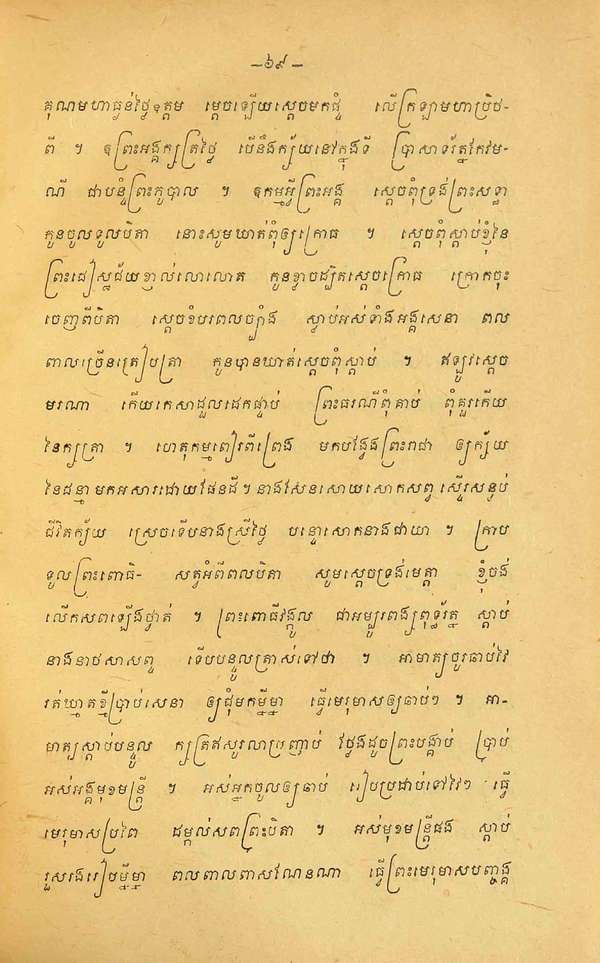 –៦៩–
គុណមហាធ្ងន់ថ្លៃឧត្តម ម្តេចឡើយស្តេចមកផ្ទំ លើក្រឡាមហាប្រឹថ-
ពី ។ ឲព្រះអង្គក្សត្រថ្លៃ បើនឹងក្ស័យនៅក្នុងទី ប្រាសាទរ័ត្នកែវម-
ណី ជាបន្ទំព្រះភូបាល ។ ឧកម្មអ្វីព្រះអង្គ ស្តេចពុំទ្រង់ព្រះសទ្ធា
កូនចូលទូលបិតា នោះសូមឃាត់ពុំឲ្យក្រោធ ។ ស្តេចពុំស្តាប់ខ្ញុំនៃ
ព្រះជៀស្តជ័យខ្ញាល់លោលោត កូនខ្លាចដ្បិតស្តេចក្រោធ ក្រោកចុះ
ចេញពីបិតា ស្តេចខំបរពលច្បាំង ស្លាប់អស់ទាំងអង្គសេនា ពល
ពាលច្រើនត្រៀបត្រា កូនបានឃាត់ស្តេចពុំស្តាប់ ។ ឥឡូវស្តេច
មរណា កើយកេសាដួលដេកផ្ទាប់ ព្រះធរណីពុំគាប់ ពុំគួរកើយ
នៃក្សត្រា ។ ហេតុកម្មពៀរពីព្រេង មកបង្វែងព្រះរាជា ឲ្យក្ស័យ
នៃជន្មា មកអសារដោយផែនដី ។ នាងសែនសោយសោកសព្វ ស្ទើរសន្ធប់
ជីវិតក្ស័យ ស្រេចទើបនាងស្រីថ្លៃ បន្ទោសោកនាងជាយា ។ ក្រាប
ទូលព្រះពោធិ- សត្វអំពីពលបិតា សូមស្តេចទ្រង់មេត្តា ខ្ញុំចង់
លើកសពឡើងថ្វាត់ ។ ព្រះពោធិវង្កូល ជាអម្បូរពង្សពុទ្ធរ័ត្ន ស្តាប់
នាងនាថសាសព្ទ ទើបបន្ទូលត្រាស់ទៅថា ។ អាមាត្យចូរឆាប់វៃ
រត់ឃ្មាតខ្មីប្រាប់សេនា ឲ្យជុំមកម្នីម្នា ធ្វើមេរុមាសឲ្យឆាប់ៗ ។ អា-
មាត្យស្តាប់បន្ទូល ក្សត្រឥសូរលាប្រញាប់ ថ្លែងដូចព្រះបង្គាប់ ប្រាប់
អស់អង្គមុខមន្ត្រី ។ អស់អ្នកចូលឲ្យឆាប់ រៀបប្រដាប់ទៅវៃៗ ធ្វើ
មេរុមាសប្រពៃ ដម្កល់សពព្រះបិតា ។ អស់មុខមន្ត្រីផង ស្តាប់
រួសរងរៀបម្នីម្នា ពលពាលពាសណែនណា ធ្វើព្រះមេរុមាសបញ្ចង្គ